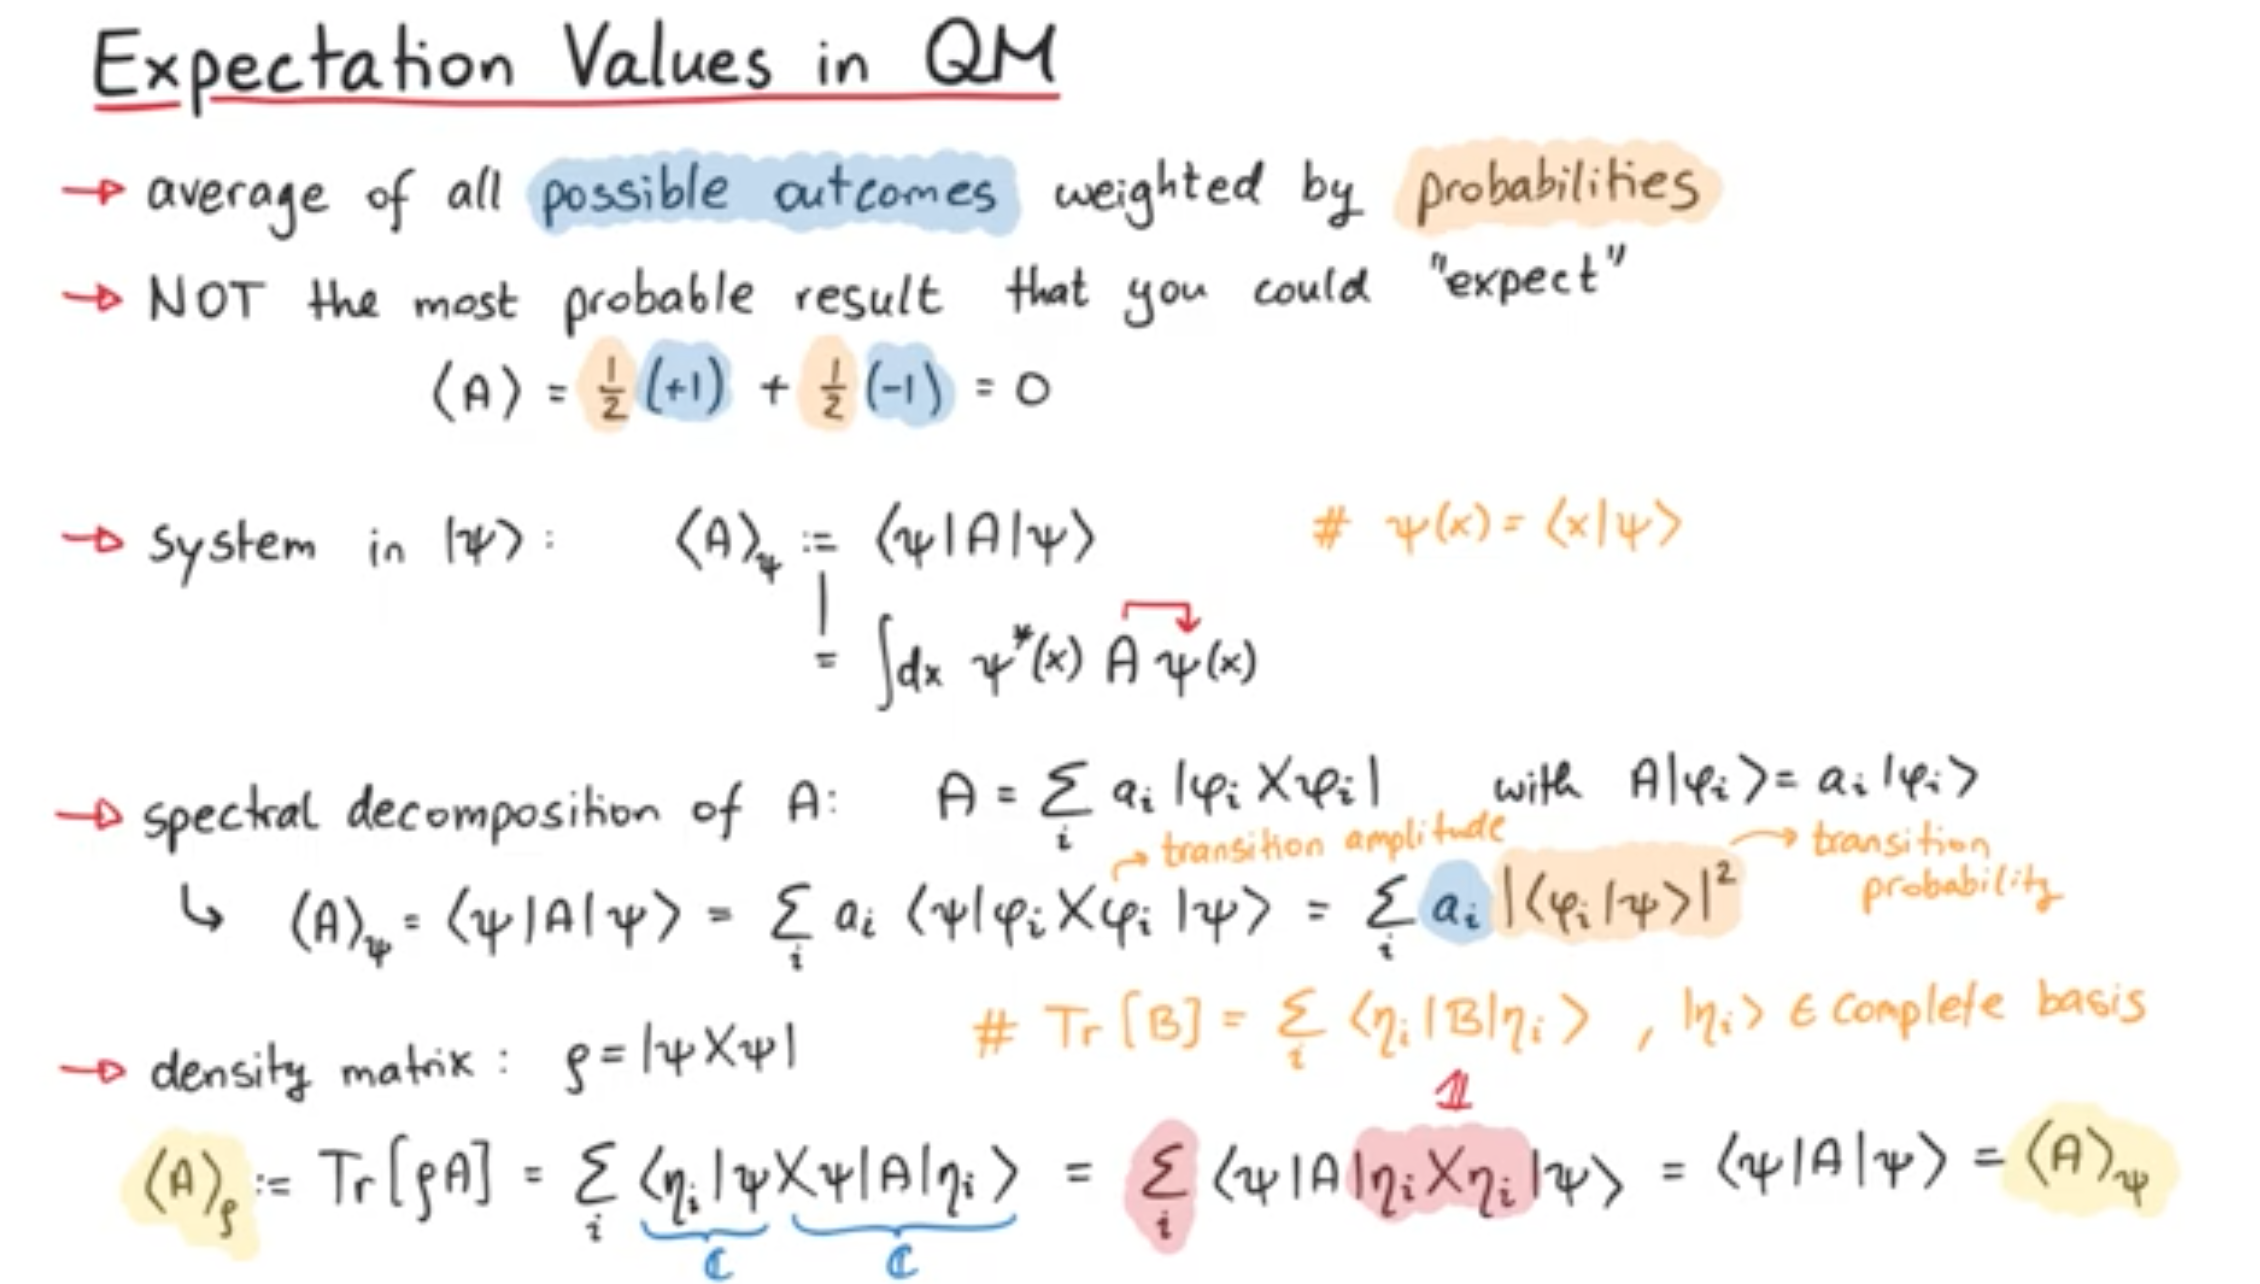 Expectation Values in QM
→ average of all possible outcomes weighted by probabilities
→ NOT the most probable result that you could "expect"
⟨A⟩ = ½ (+1) + ½ (-1) = 0
→ system in |ψ⟩ : ⟨A⟩_ψ := ⟨ψ|A|ψ⟩ # ψ(x) = ⟨x|ψ⟩
= ∫dx ψ*(x) A ψ(x)
→ spectral decomposition of A: A = Σ_i a_i |φ_i⟩⟨φ_i| with A|φ_i⟩ = a_i |φ_i⟩
→ transition amplitude → transition probability
↳ ⟨A⟩_ψ = ⟨ψ|A|ψ⟩ = Σ_i a_i ⟨ψ|φ_i⟩⟨φ_i|ψ⟩ = Σ_i a_i |⟨φ_i|ψ⟩|²
# Tr[B] = Σ_i ⟨η_i|B|η_i⟩ , |η_i⟩ ∈ complete basis
→ density matrix : ρ = |ψ⟩⟨ψ|
𝟙
⟨A⟩_ρ := Tr[ρA] = Σ_i ⟨η_i|ψ⟩⟨ψ|A|η_i⟩ = Σ_i ⟨ψ|A|η_i⟩⟨η_i|ψ⟩ = ⟨ψ|A|ψ⟩ = ⟨A⟩_ψ
ℂ ℂ